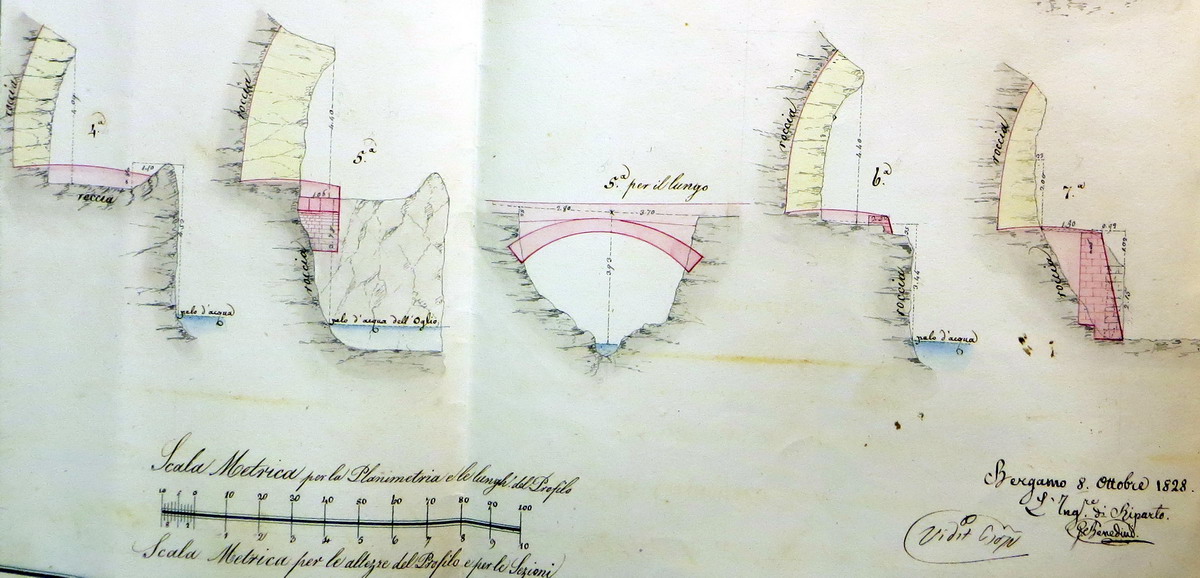 4.ª
roccia
4.00
1.50
roccia
pelo d'acqua
5.ª
roccia
4.40
roccia
pelo d'acqua dell'Oglio
5.ª per il lungo
2.80
3.70
6.ª
roccia
4.40
roccia
pelo d'acqua
7.ª
roccia
roccia
1.30
0.93
Scala Metrica per la Planimetria e le lungh. del Profilo
10 5 0 10 20 30 40 50 60 70 80 90 100
1 2 3 4 5 6 7 8 9 10
Scala Metrica per le altezze del Profilo e per le Sezioni
Bergamo 8. Ottobre 1828.
L'Ing.re di Riparto.
Vidit